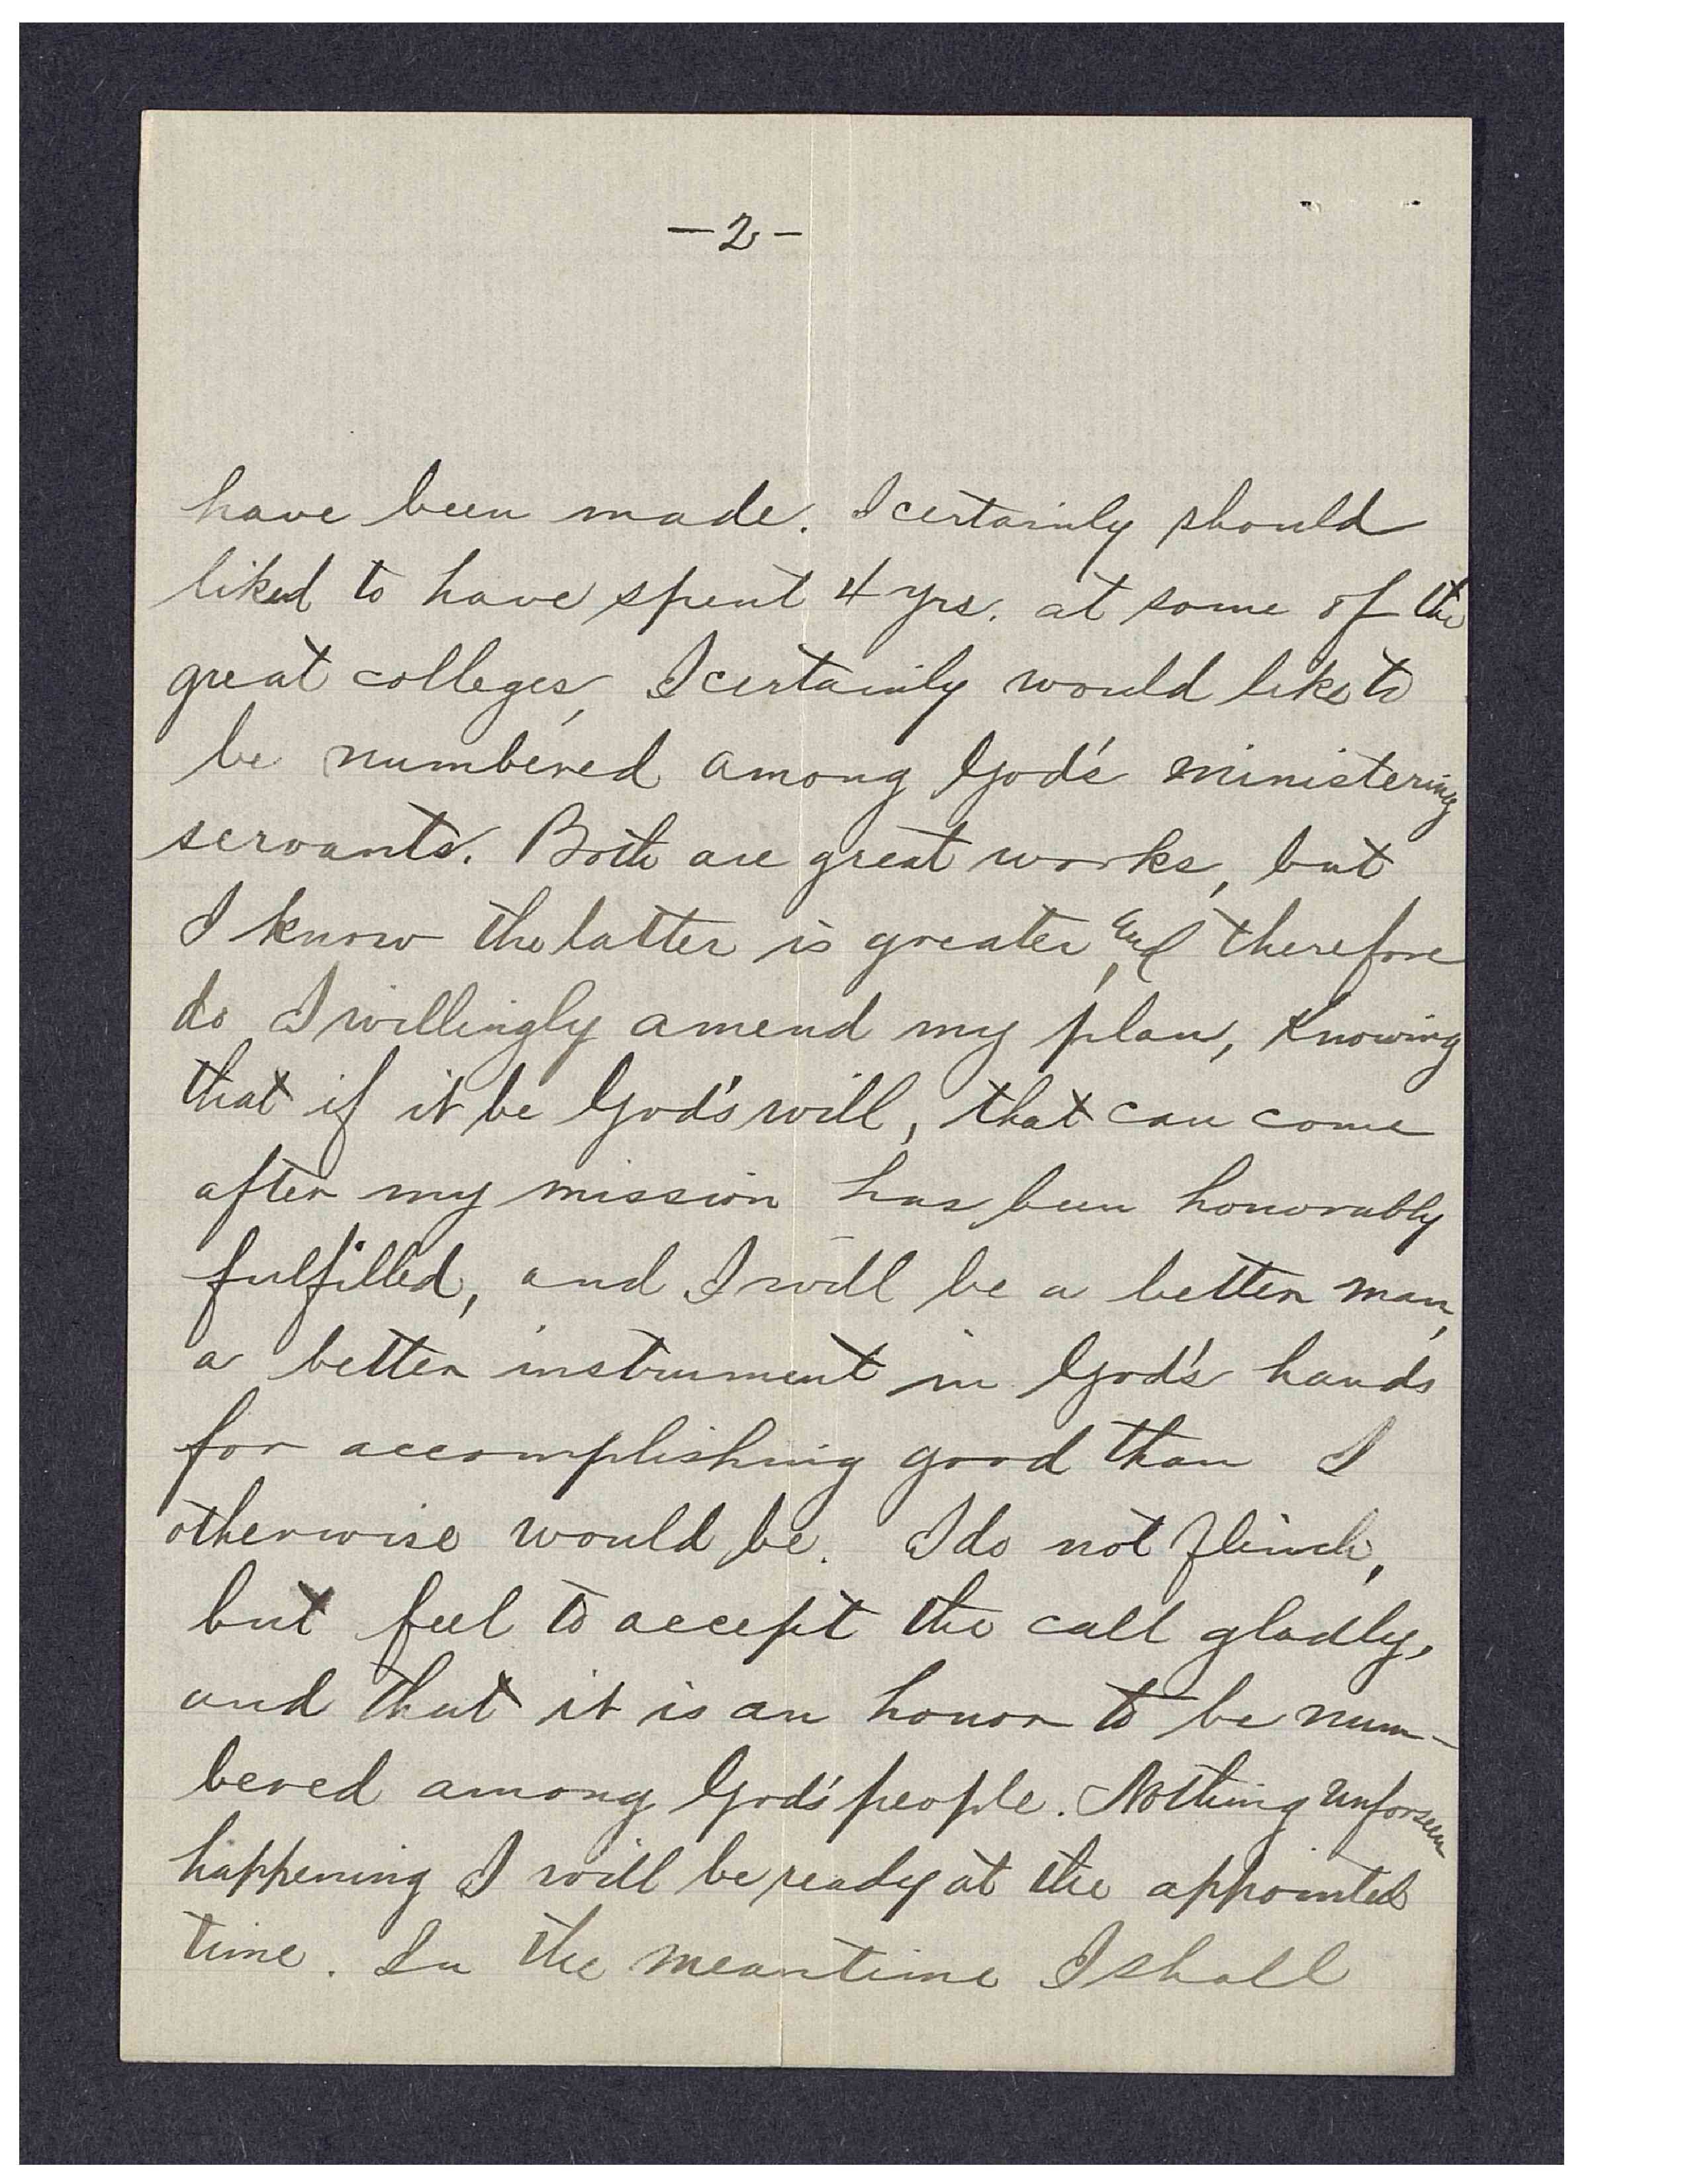 -2-
have been made. I certainly should
liked to have spent 4 yrs. at some of the
great colleges, I certainly would like to
be numbered among God's ministering
servants. Both are great works, but
I know the latter is greater, and therefore
do I willingly amend my plan, knowing
that if it be God's will, that can come
after my mission has been honorably
fulfilled, and I will be a better man,
a better instrument in God's hands
for accomplishing good than I
otherwise would be. I do not flinch,
but feel to accept the call gladly,
and that it is an honor to be num-
bered among God's people. Nothing unforseen
happening I will be ready at the appointed
time. In the meantime I shall